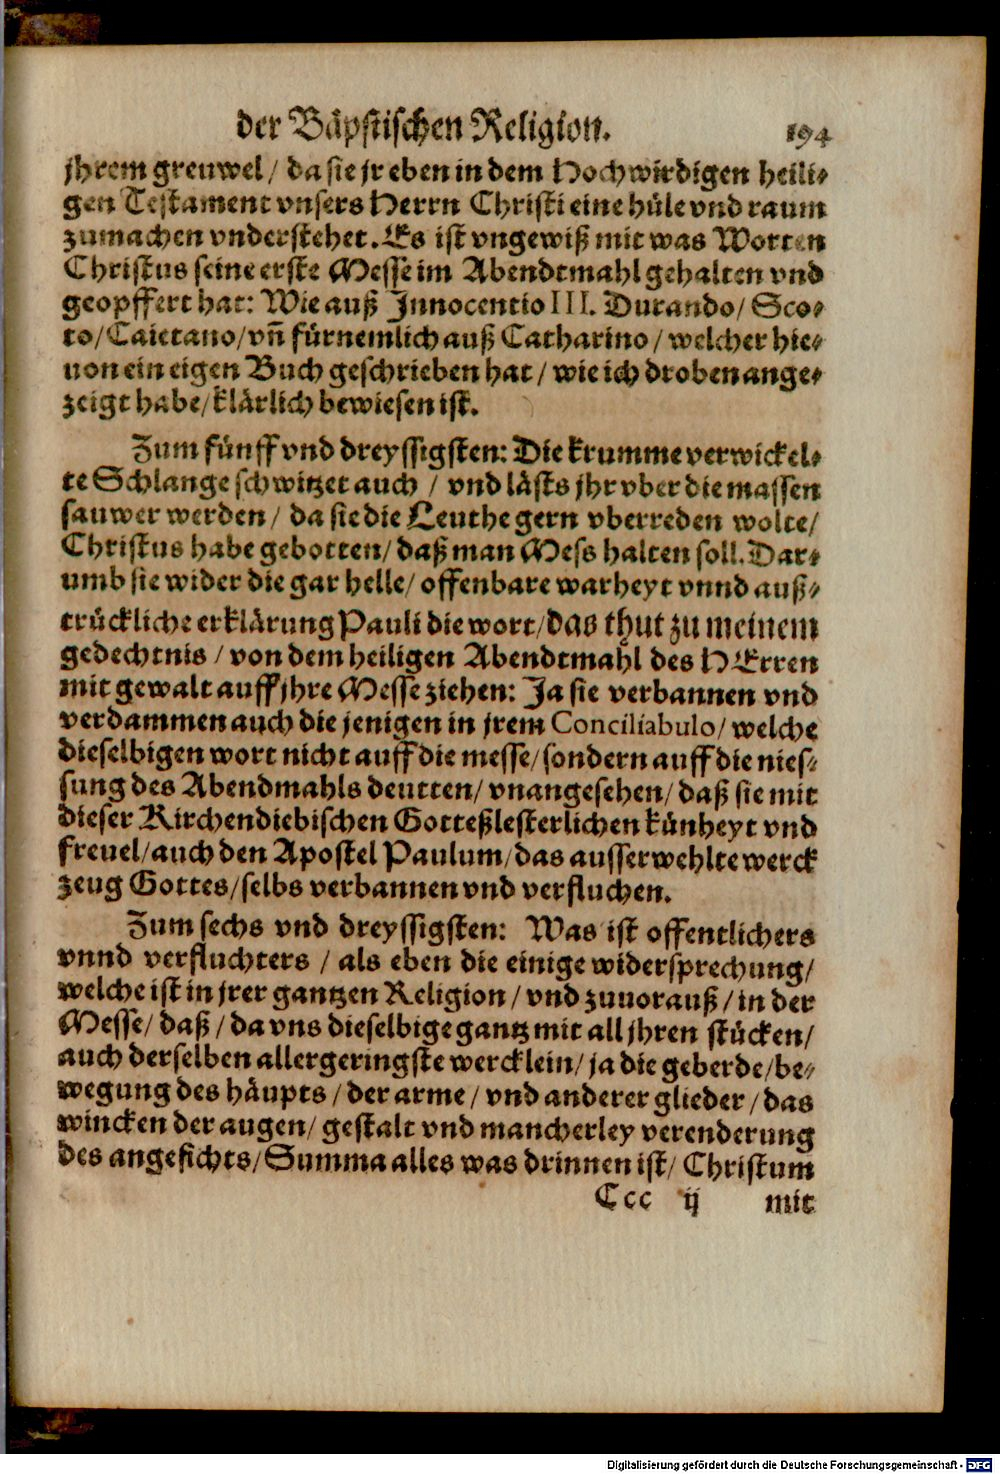 der Bäpstischen Religion. 194
jhrem grewel / da sie jr eben in dem Hochwirdigen heili-
gen Testament vnsers Herrn Christi eine hüle vnd raum
zumachen vnderstehet. Es ist vngewiß mit was Worten
Christus seine erste Messe im Abendtmahl gehalten vnd
geopffert hat: Wie auß Innocentio III. Durando / Sco-
to / Caietano / vñ fürnemlich auß Catharino / welcher hie-
uon ein eigen Buch geschrieben hat / wie ich droben ange-
zeigt habe / klärlich bewiesen ist.
Zum fünff vnd dreyssigsten: Die krumme verwickel-
te Schlange schwitzet auch / vnd lästs jhr vber die massen
sauwer werden / da sie die Leuthe gern vberreden wolte /
Christus habe gebotten / daß man Mess halten soll. Dar-
umb sie wider die gar helle / offenbare warheyt vnnd auß-
trückliche erklärung Pauli die wort / das thut zu meinem
gedechtnis / von dem heiligen Abendtmahl des HErren
mit gewalt auff jhre Messe ziehen: Ja sie verbannen vnd
verdammen auch die jenigen in jrem Conciliabulo / welche
dieselbigen wort nicht auff die messe / sondern auff die nies-
sung des Abendmahls deutten / vnangesehen / daß sie mit
dieser Kirchendiebischen Gotteßlesterlichen künheyt vnd
freuel / auch den Apostel Paulum / das ausserwehlte werck
zeug Gottes / selbs verbannen vnd verfluchen.
Zum sechs vnd dreyssigsten: Was ist offentlichers
vnnd verfluchters / als eben die einige widersprechung /
welche ist in jrer gantzen Religion / vnd zuuorauß / in der
Messe / daß / da vns dieselbige gantz mit all jhren stücken /
auch derselben allergeringste wercklein / ja die geberde / be-
wegung des häupts / der arme / vnd anderer glieder / das
wincken der augen / gestalt vnd mancherley verenderung
des angesichts / Summa alles was drinnen ist / Christum
Ccc ij mit
Digitalisierung gefördert durch die Deutsche Forschungsgemeinschaft - DFG